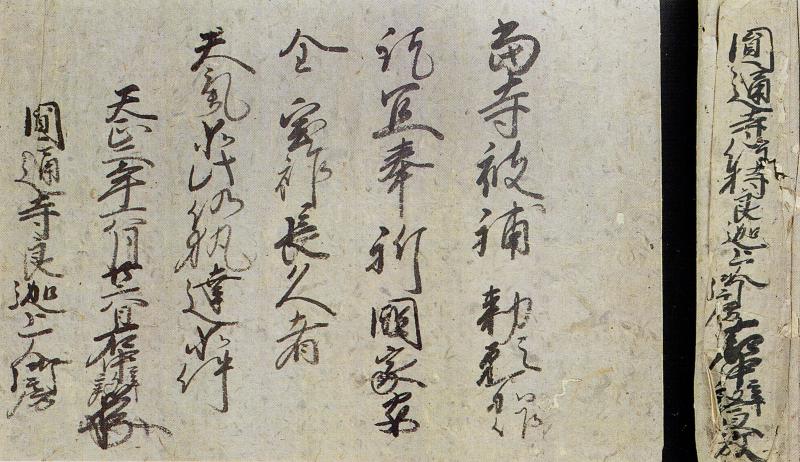 當寺被補 勅願所
訖宜奉祈國家安
全 宝祚長久者
天氣如此仍執達如件
天正三年六月廿八日右中辨
圓通寺良迦上人御房
圓通寺 良迦上人 右中辨